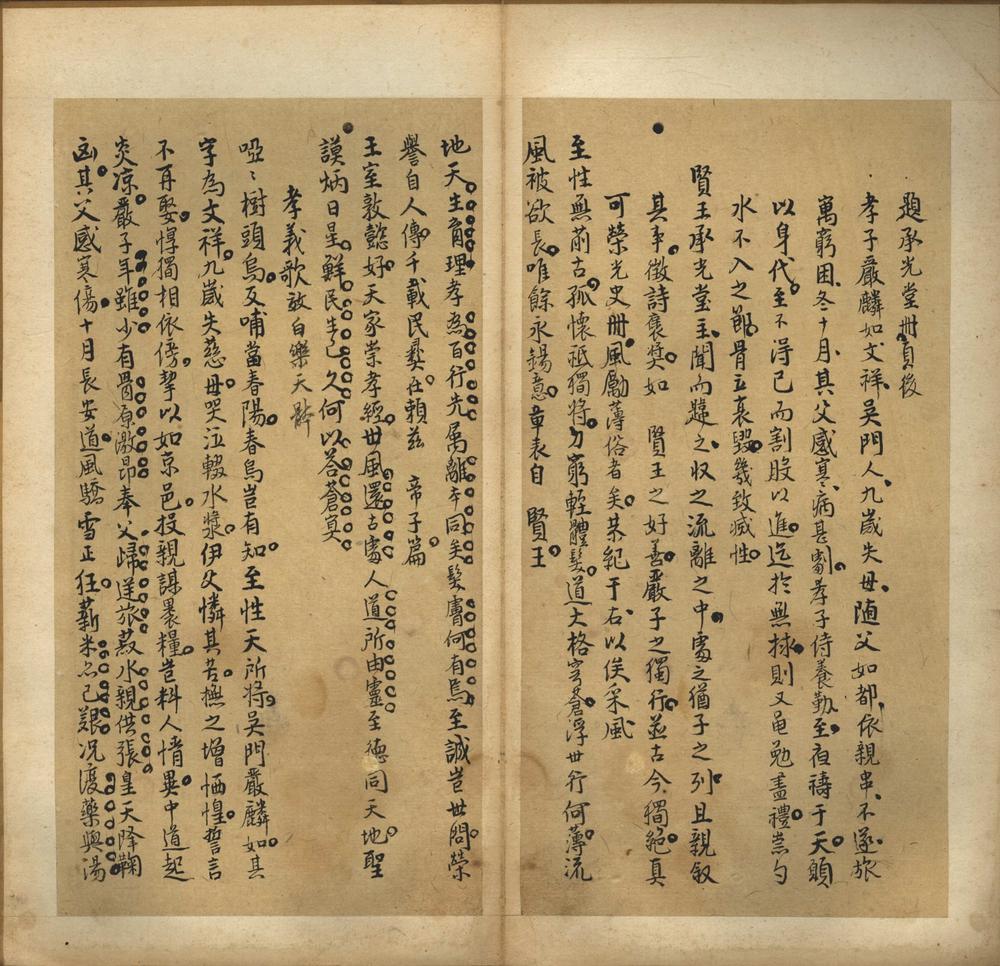 題承光堂冊頁後
孝子嚴麟如文祥吳門人九歲失母随父如都依親串不遂旅
寓窮困冬十月其父感寒病甚劇孝子侍養勤至夜禱于天願
以身代至不得已而割股以進迄於無捄則又黽勉盡禮棠勺
水不入之節骨立哀毀幾致滅性
賢王承光堂主聞而韙之収之流離之中處之猶子之列且親叙
其事徵詩褒奨如　賢王之好善嚴子之獨行並古今獨絕真
可榮光史冊風勵薄俗者矣恭紀于右以俟采風
至性無前古孤懷祗獨將力窮輕體髪道大格穹蒼浮世行何薄流
風被欲長唯餘永錫意章表自　賢王
地天生有理孝為百行先属離本同矣髪膚何有焉至誠豈世問榮
譽自人傳千載民彜在賴茲　帝子篇
王室敦懿好天家崇孝經世風還古處人道所由寧至德同天地聖
謨炳日星鮮民生已久何以荅蒼冥
孝義歌效白樂天軆
啞〻樹頭烏反哺當春陽春烏豈有知至性天所將吳門嚴麟如其
字為文祥九歲失慈母哭泣輟水漿伊父憐其苦撫之增恓惶誓言
不再娶惸獨相依傍挈以如京邑投親謀裹糧豈料人情異中道起
炎凉嚴子年雖少有骨原激昂奉父歸逆旅菽水親供張皇天降鞠
凶其父感寒傷十月長安道風驕雪正狂薪米亦已艱况復藥與湯